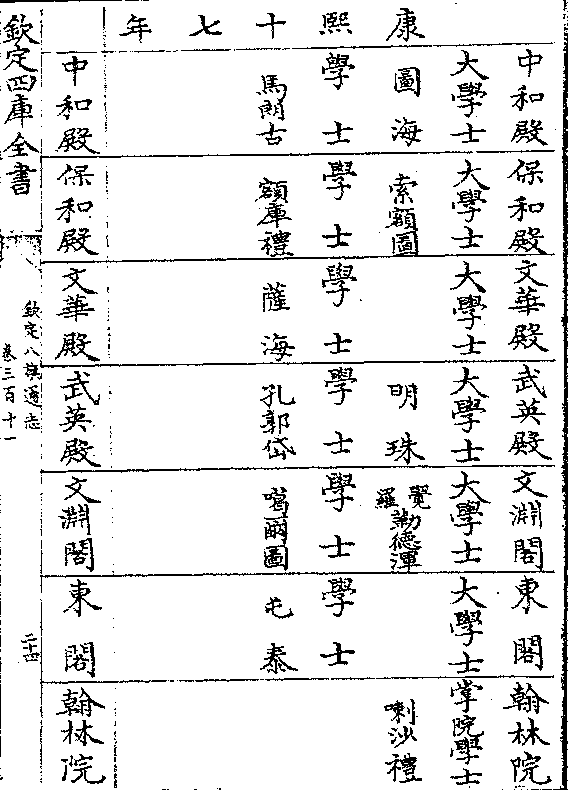 中和殿 保和殿 文華殿 武英殿 文淵閣 東閣 翰林院
大學士 大學士 大學士 大學士 大學士 大學士 掌院學士
康 圖海 索額圖 明珠 覺羅勒德渾 喇沙禮
熙 學士 學士 學士 學士 學士 學士
十 馬朗古 額庫禮 薩海 孔郭岱 噶爾圖 屯泰
七
年
中和殿 保和殿 文華殿 武英殿 文淵閣 東閣 翰林院
欽定四庫全書
欽定八旗通志
卷三百十一
二十四